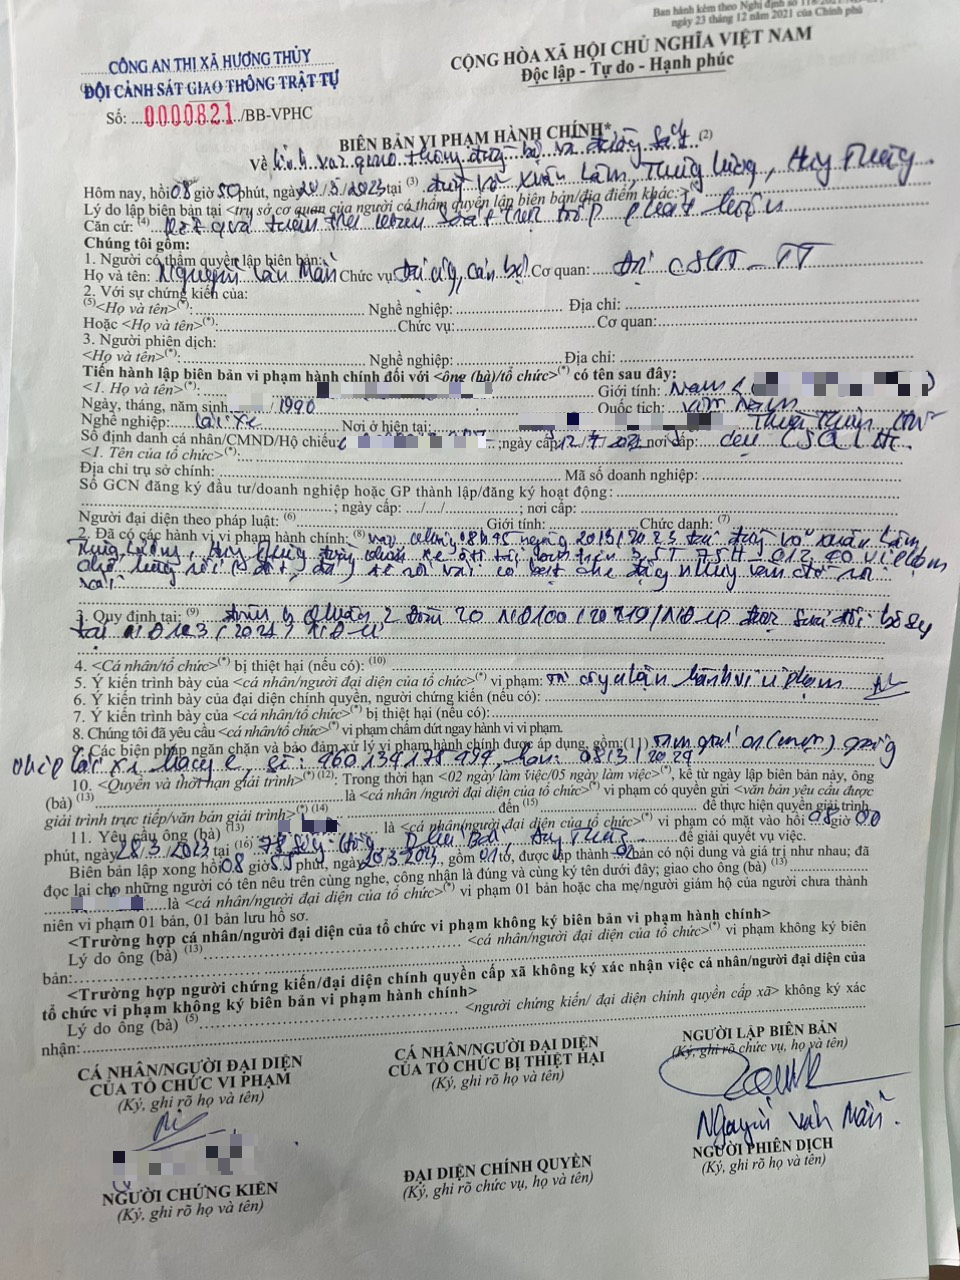 Ban hành kèm theo Nghị định số 118/2021/NĐ-CP
ngày 23 tháng 12 năm 2021 của Chính phủ
CÔNG AN THỊ XÃ HƯƠNG THỦY
ĐỘI CẢNH SÁT GIAO THÔNG TRẬT TỰ
Số: ...0000821../BB-VPHC
CỘNG HÒA XÃ HỘI CHỦ NGHĨA VIỆT NAM
Độc lập - Tự do - Hạnh phúc
BIÊN BẢN VI PHẠM HÀNH CHÍNH*
Về lĩnh vực giao thông đường bộ và đường sắt (2)
Hôm nay, hồi 08 giờ 50 phút, ngày 20/3/2023 tại (3) đường Võ Xuân Lâm, Thủy Lương, Hương Thủy
Lý do lập biên bản tại <trụ sở cơ quan của người có thẩm quyền lập biên bản/địa điểm khác>
Căn cứ: (4) Kết quả tuần tra kiểm soát trực tiếp phát hiện
Chúng tôi gồm:
1. Người có thẩm quyền lập biên bản:
Họ và tên: Nguyễn Văn Mẫn Chức vụ: Đại úy, cán bộ Cơ quan: Đội CSGT-TT
2. Với sự chứng kiến của:
(5)<Họ và tên>(*): Nghề nghiệp: Địa chỉ:
Hoặc <Họ và tên>(*): Chức vụ: Cơ quan:
3. Người phiên dịch:
<Họ và tên>(*): Nghề nghiệp: Địa chỉ:
Tiến hành lập biên bản vi phạm hành chính đối với <ông (bà)/tổ chức>(*) có tên sau đây:
<1. Họ và tên>(*): Giới tính: Nam
Ngày, tháng, năm sinh /1990 Quốc tịch: Việt Nam
Nghề nghiệp: Lái xe Nơi ở hiện tại:
Số định danh cá nhân/CMND/Hộ chiếu: ; ngày cấp: 12/7/2021 nơi cấp: Cục CSQLHC
<1. Tên của tổ chức>(*):
Địa chỉ trụ sở chính: Mã số doanh nghiệp:
Số GCN đăng ký đầu tư/doanh nghiệp hoặc GP thành lập/đăng ký hoạt động:
; ngày cấp: ..../..../....; nơi cấp:
Người đại diện theo pháp luật: (6) Giới tính: Chức danh: (7)
2. Đã có các hành vi vi phạm hành chính: (8) vào lúc 08h45 ngày 20/3/2023 tại đường Võ Xuân Lâm
Thủy Lương, Hương Thủy điều khiển xe ôtô tải 3,5T 75H-012.40 vi phạm
chở hàng rời (đất, đá) rơi vãi có bạt che đậy nhưng vẫn để rơi
vãi
3. Quy định tại: (9) điểm Khoản 2 Điều 20 NĐ100/2019/NĐ-CP được sửa đổi bổ sung
tại NĐ123/2021/NĐ-CP
4. <Cá nhân/tổ chức>(*) bị thiệt hại (nếu có): (10)
5. Ý kiến trình bày của <cá nhân/người đại diện của tổ chức>(*) vi phạm: Tôi công nhận hành vi vi phạm
6. Ý kiến trình bày của đại diện chính quyền, người chứng kiến (nếu có):
7. Ý kiến trình bày của <cá nhân/tổ chức>(*) bị thiệt hại (nếu có):
8. Chúng tôi đã yêu cầu <cá nhân/tổ chức>(*) vi phạm chấm dứt ngay hành vi vi phạm.
9. Các biện pháp ngăn chặn và bảo đảm xử lý vi phạm hành chính được áp dụng, gồm: (11) Tạm giữ 01 (một) giấy
phép lái xe hạng C, số: 460134178999, hạn: 08/3/2029
10. <Quyền và thời hạn giải trình>(*)(12): Trong thời hạn <02 ngày làm việc/05 ngày làm việc>(*), kể từ ngày lập biên bản này, ông
(bà) (13) là <cá nhân /người đại diện của tổ chức>(*) vi phạm có quyền gửi <văn bản yêu cầu được
giải trình trực tiếp/văn bản giải trình>(*)(14) đến (15) để thực hiện quyền giải trình.
11. Yêu cầu ông (bà) (13) là <cá nhân/người đại diện của tổ chức>(*) vi phạm có mặt vào hồi 08 giờ 00
phút, ngày 28/3/2023 tại (16) 78 Sóng Hồng, Phú Bài, Hương Thủy để giải quyết vụ việc.
Biên bản lập xong hồi 08 giờ 55 phút, ngày 20/3/2023, gồm 01 tờ, được lập thành 02 bản có nội dung và giá trị như nhau; đã
đọc lại cho những người có tên nêu trên cùng nghe, công nhận là đúng và cùng ký tên dưới đây; giao cho ông (bà) (13)
là <cá nhân/người đại diện của tổ chức>(*) vi phạm 01 bản hoặc cha mẹ/người giám hộ của người chưa thành
niên vi phạm 01 bản, 01 bản lưu hồ sơ.
<Trường hợp cá nhân/người đại diện của tổ chức vi phạm không ký biên bản vi phạm hành chính>
Lý do ông (bà) (13) <cá nhân/người đại diện của tổ chức>(*) vi phạm không ký biên
bản:
<Trường hợp người chứng kiến/đại diện chính quyền cấp xã không ký xác nhận việc cá nhân/người đại diện của
tổ chức vi phạm không ký biên bản vi phạm hành chính>
Lý do ông (bà) (5) <người chứng kiến/ đại diện chính quyền cấp xã> không ký xác
nhận:
CÁ NHÂN/NGƯỜI ĐẠI DIỆN
CỦA TỔ CHỨC VI PHẠM
(Ký, ghi rõ họ và tên)
CÁ NHÂN/NGƯỜI ĐẠI DIỆN
CỦA TỔ CHỨC BỊ THIỆT HẠI
(Ký, ghi rõ họ và tên)
NGƯỜI LẬP BIÊN BẢN
(Ký, ghi rõ chức vụ, họ và tên)
Nguyễn Văn Mẫn
NGƯỜI CHỨNG KIẾN
(Ký, ghi rõ họ và tên)
ĐẠI DIỆN CHÍNH QUYỀN
(Ký, ghi rõ chức vụ, họ và tên)
NGƯỜI PHIÊN DỊCH
(Ký, ghi rõ họ và tên)